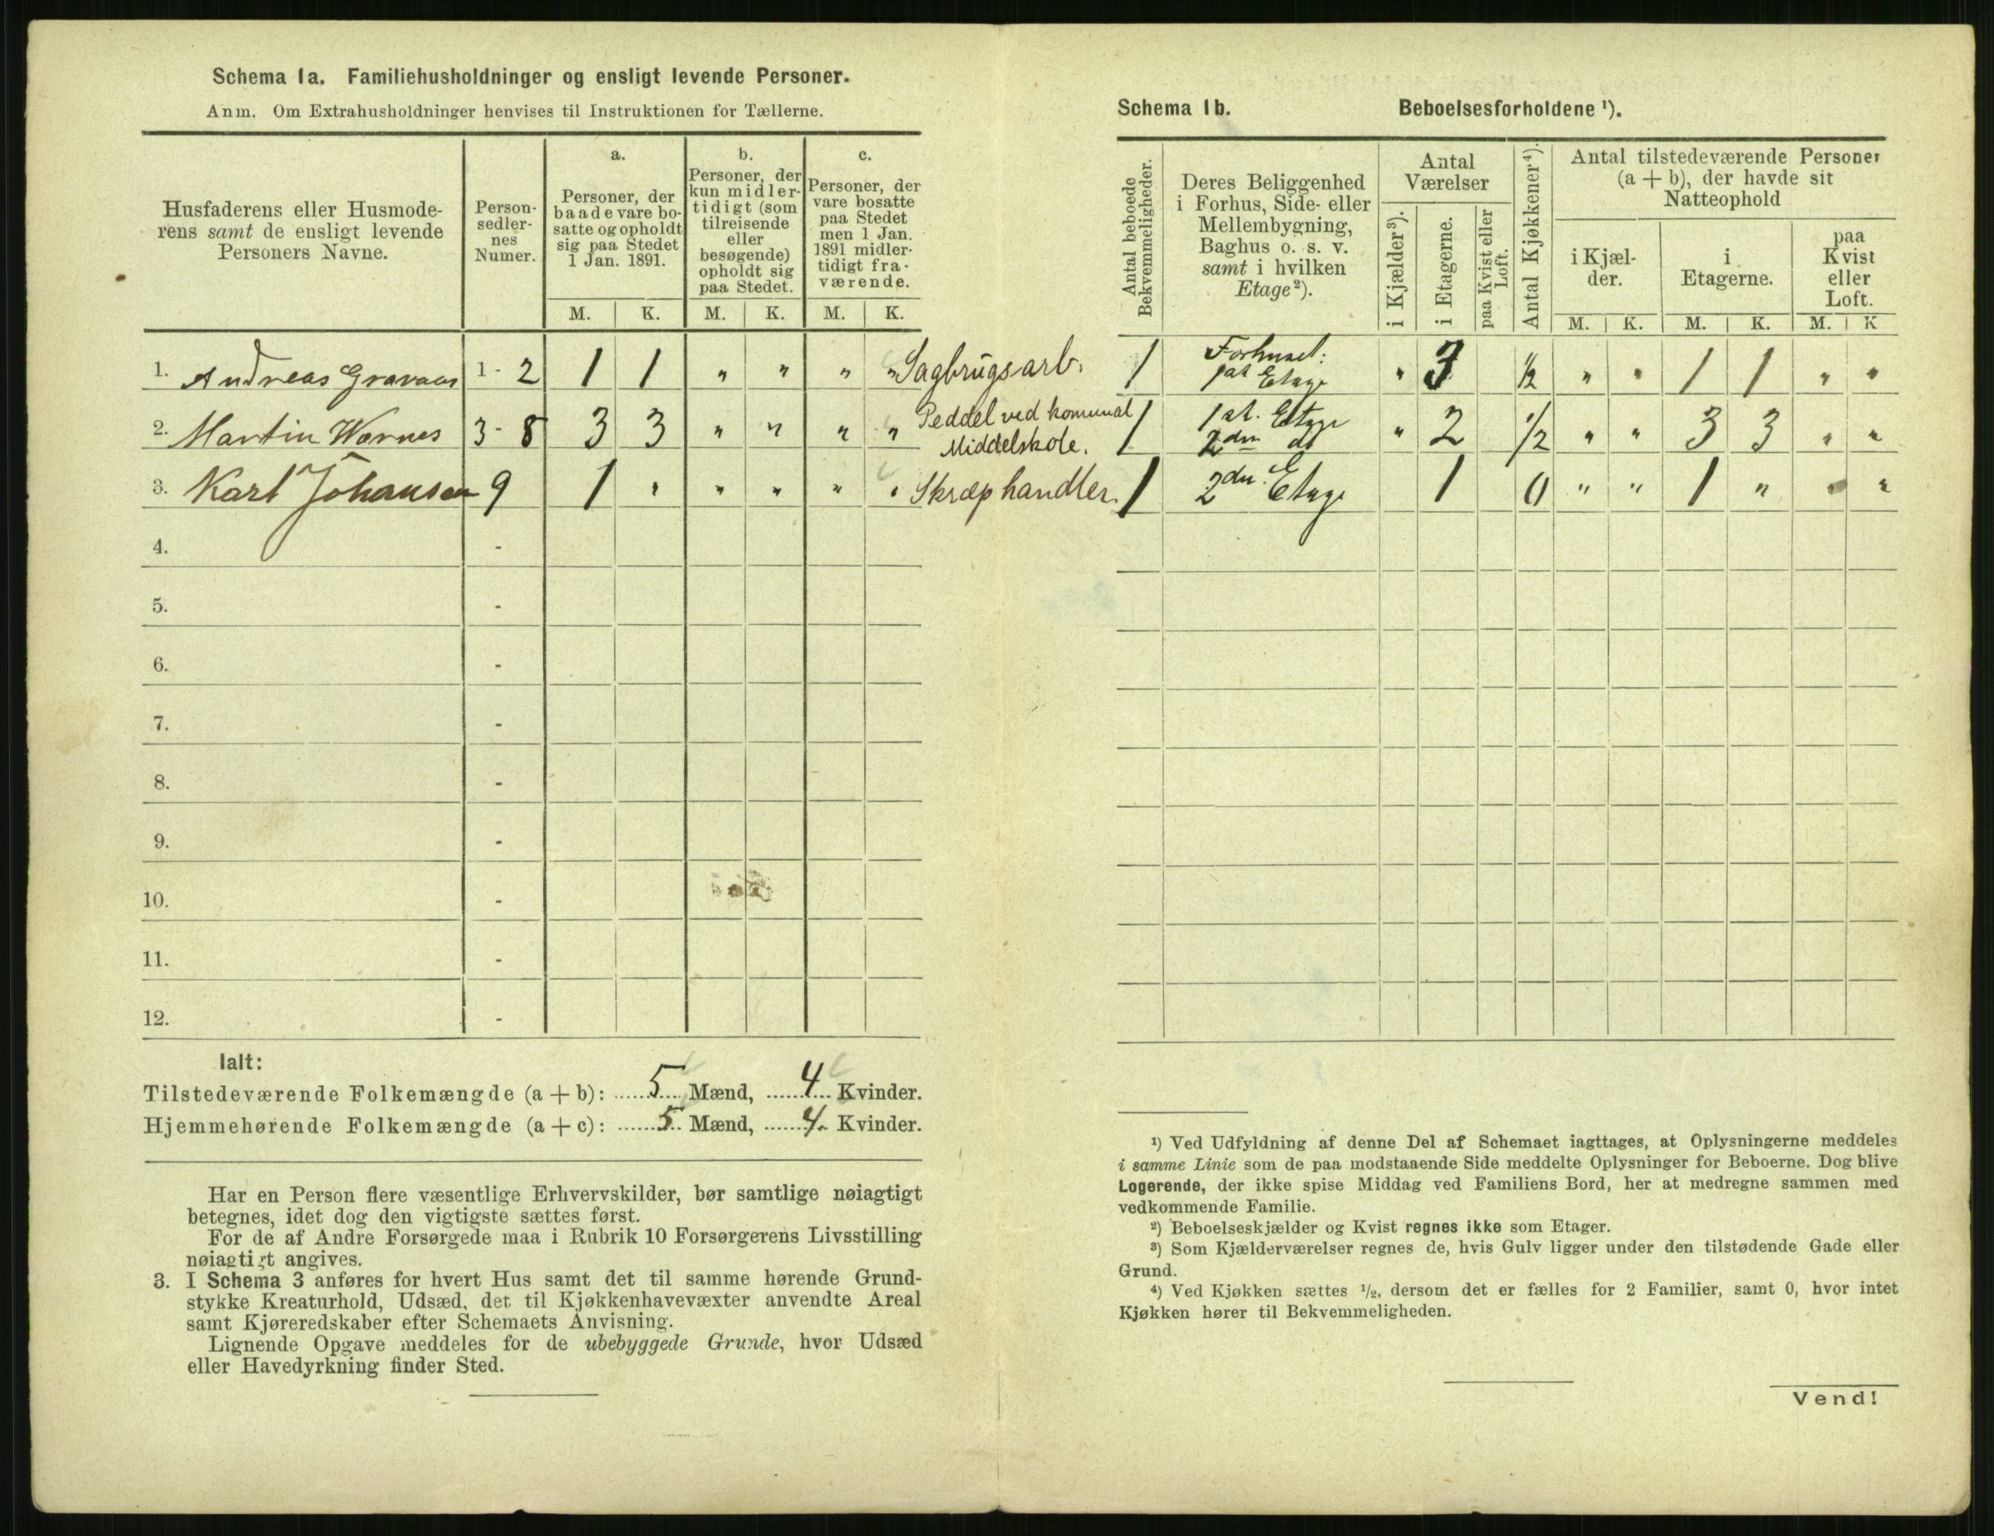 Schema 1a. Familiehusholdninger og ensligt levende Personer.
Anm. Om Extrahusholdninger henvises til Instruktionen for Tællerne.
Husfaderens eller Husmode-
rens samt de ensligt levende
Personers Navne.
Person-
sedler-
nes
Numer.
a.
Personer, der
baade vare bo-
satte og opholdt
sig paa Stedet
1 Jan. 1891.
b.
Personer, der
kun midler-
tidigt (som
tilreisende
eller
besøgende)
opholdt sig
paa Stedet.
c.
Personer, der
vare bosatte
paa Stedet
men 1 Jan.
1891 midler-
tidigt fra-
værende.
M. K. M. K. M. K.
1. Andreas Gravaas 1 - 2 1 1 " " " " Sagbrugsarb.
2. Martin Warnes 3 - 8 3 3 " " " " Peddel ved komunal
Middelskole.
3. Karl Johansen 9 1 " " " " " Skræphandler.
4. -
5. -
6. -
7. -
8. -
9. -
10. -
11. -
12. -
Ialt:
Tilstedeværende Folkemængde (a + b): 5 Mænd, 4 Kvinder.
Hjemmehørende Folkemængde (a + c): 5 Mænd, 4 Kvinder.
Har en Person flere væsentlige Erhvervskilder, bør samtlige nøiagtigt
betegnes, idet dog den vigtigste sættes først.
For de af Andre Forsørgede maa i Rubrik 10 Forsørgerens Livsstilling
nøiagtigt angives.
3. I Schema 3 anføres for hvert Hus samt det til samme hørende Grund-
stykke Kreaturhold, Udsæd, det til Kjøkkenhavevæxter anvendte Areal
samt Kjøreredskaber efter Schemaets Anvisning.
Lignende Opgave meddeles for de ubebyggede Grunde, hvor Udsæd
eller Havedyrkning finder Sted.
Schema 1b. Beboelsesforholdene ¹).
Antal beboede
Bekvemmeligheder.
Deres Beliggenhed
i Forhus, Side- eller
Mellembygning,
Baghus o. s. v.
samt i hvilken
Etage ²).
Antal
Værelser
i Kjælder ³).
i Etagerne.
paa Kvist eller
Loft.
Antal Kjøkkener ⁴).
Antal tilstedeværende Personer
(a + b), der havde sit
Natteophold
i Kjæl-
der.
i
Etagerne.
paa
Kvist
eller
Loft.
M. K. M. K. M. K
1 Forhuset:
1st Etage " 3 ½ " " 1 1 " "
1 1st. Etage
2den do " 2 ½ " " 3 3 " "
1 2den Etage 1 0 " " 1 " " "
¹) Ved Udfyldning af denne Del af Schemaet iagttages, at Oplysningerne meddeles
i samme Linie som de paa modstaaende Side meddelte Oplysninger for Beboerne. Dog blive
Logerende, der ikke spise Middag ved Familiens Bord, her at medregne sammen med
vedkommende Familie.
²) Beboelseskjælder og Kvist regnes ikke som Etager.
³) Som Kjælderværelser regnes de, hvis Gulv ligger under den tilstødende Gade eller
Grund.
⁴) Ved Kjøkken sættes ½, dersom det er fælles for 2 Familier, samt 0, hvor intet
Kjøkken hører til Bekvemmeligheden.
Vend!